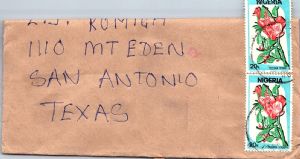 1110 MT EDEN
SAN ANTONIO
TEXAS
NIGERIA
20k
NIGERIA